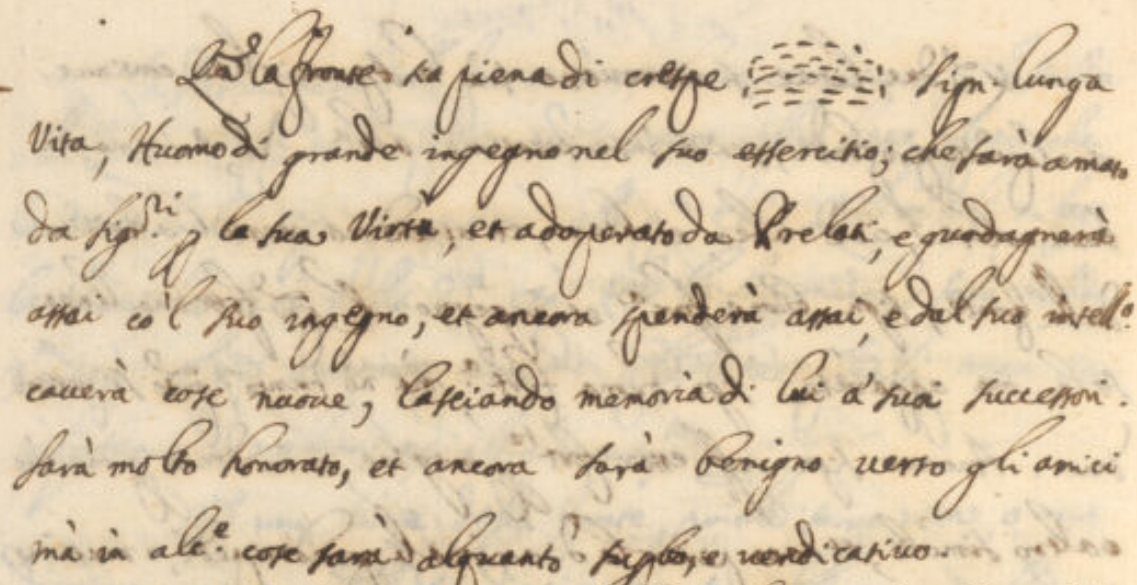 Qn̄ la fronte sta piena di crespe sign. lunga
Vita, Huomo di grande ingegno nel suo essercitio; che sarà amato
da sigri. p la sua Virtù, et adoperato da Prelati, e guadagnerà
assai co'l suo ingegno, et ancora spenderà assai, e dal suo intello.
cauerà cose nuoue, lasciando memoria di lui a' suoi successori.
sarà molto honorato, et ancora sarà benigno uerso gli amici
mà in alce. cose sarà alquanto e uendicatiuo